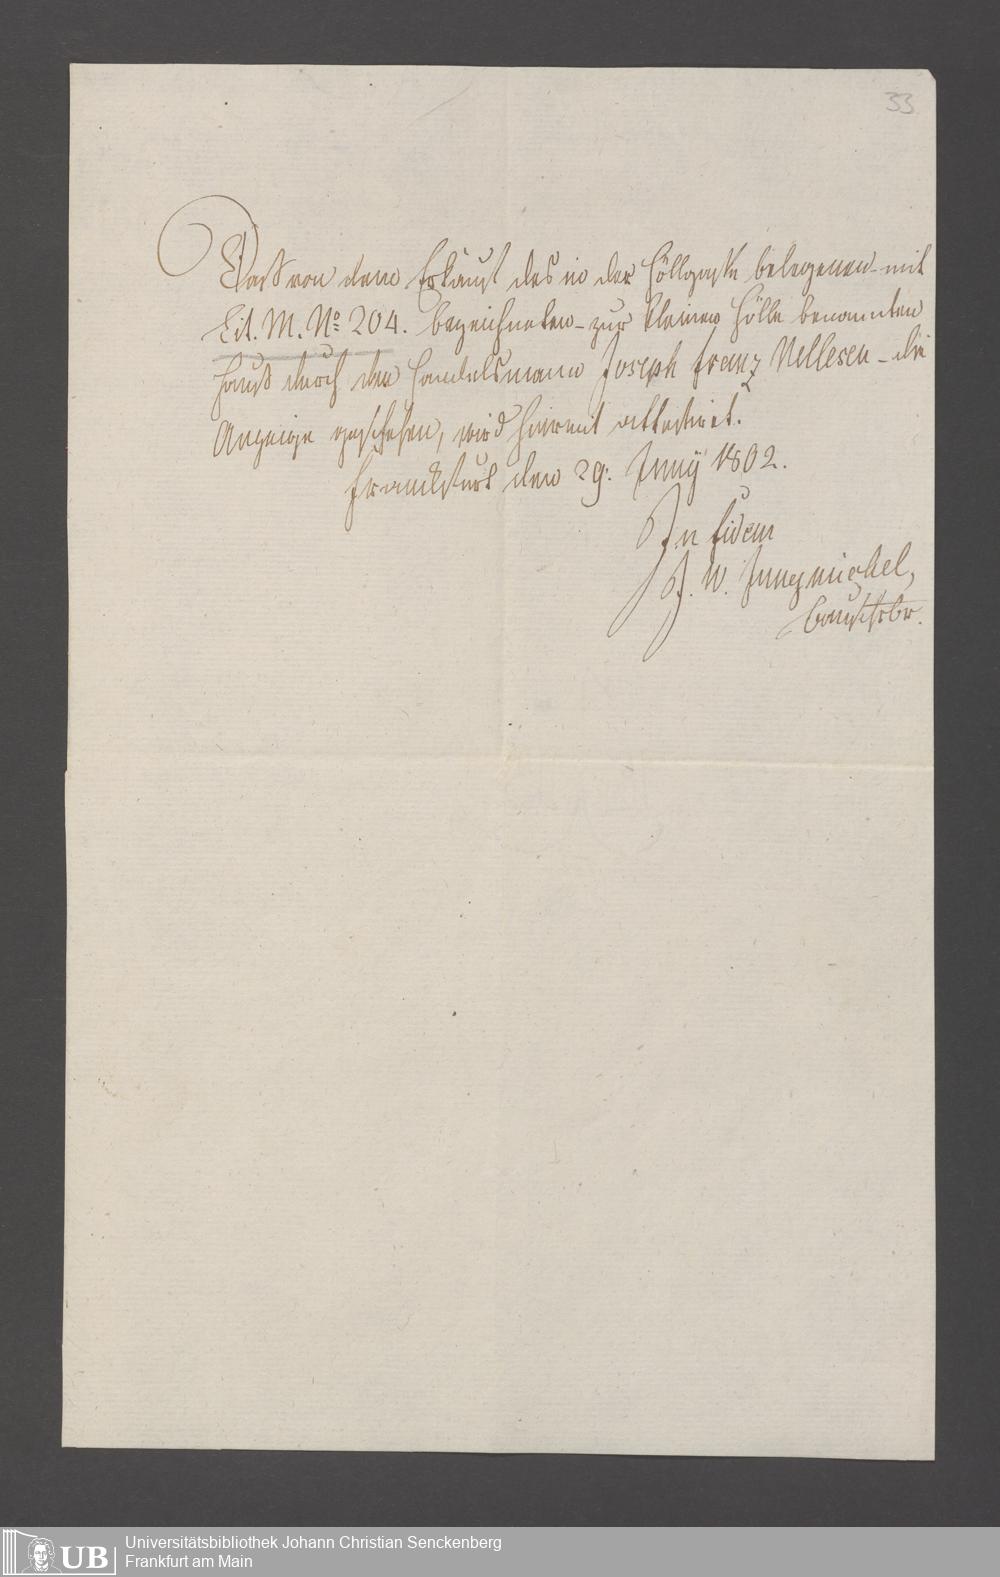 33
Daß von dem Erkauf des in der Höllgasse belegenen - mit
Lit. M. No. 204. bezeichneten - zur kleinen Hölle benannten
Hauß durch den Handelsmann Joseph Franz Nellesen - die
Anzeige geschehen, wird hiermit attestiret.
Franckfurt den 29: Junÿ 1802.
In fidem
J. W. Jungmichel,
Bauschrbr.
UB
Universitätsbibliothek Johann Christian Senckenberg
Frankfurt am Main